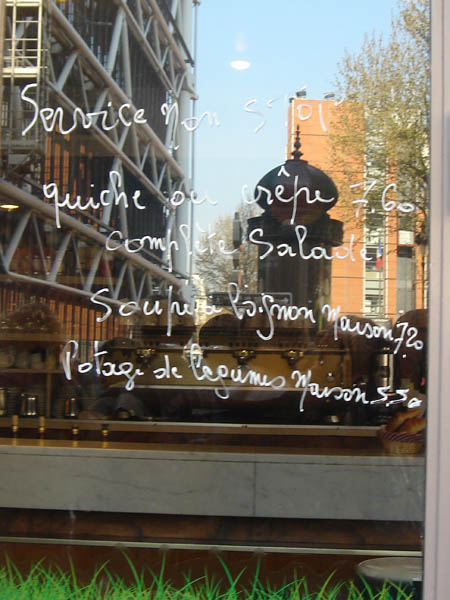 Service Non STOP
quiche ou crêpe 7,60
complète Salade
Soupe à l'oignon Maison 7,20
Potage de légumes Maison 5,50